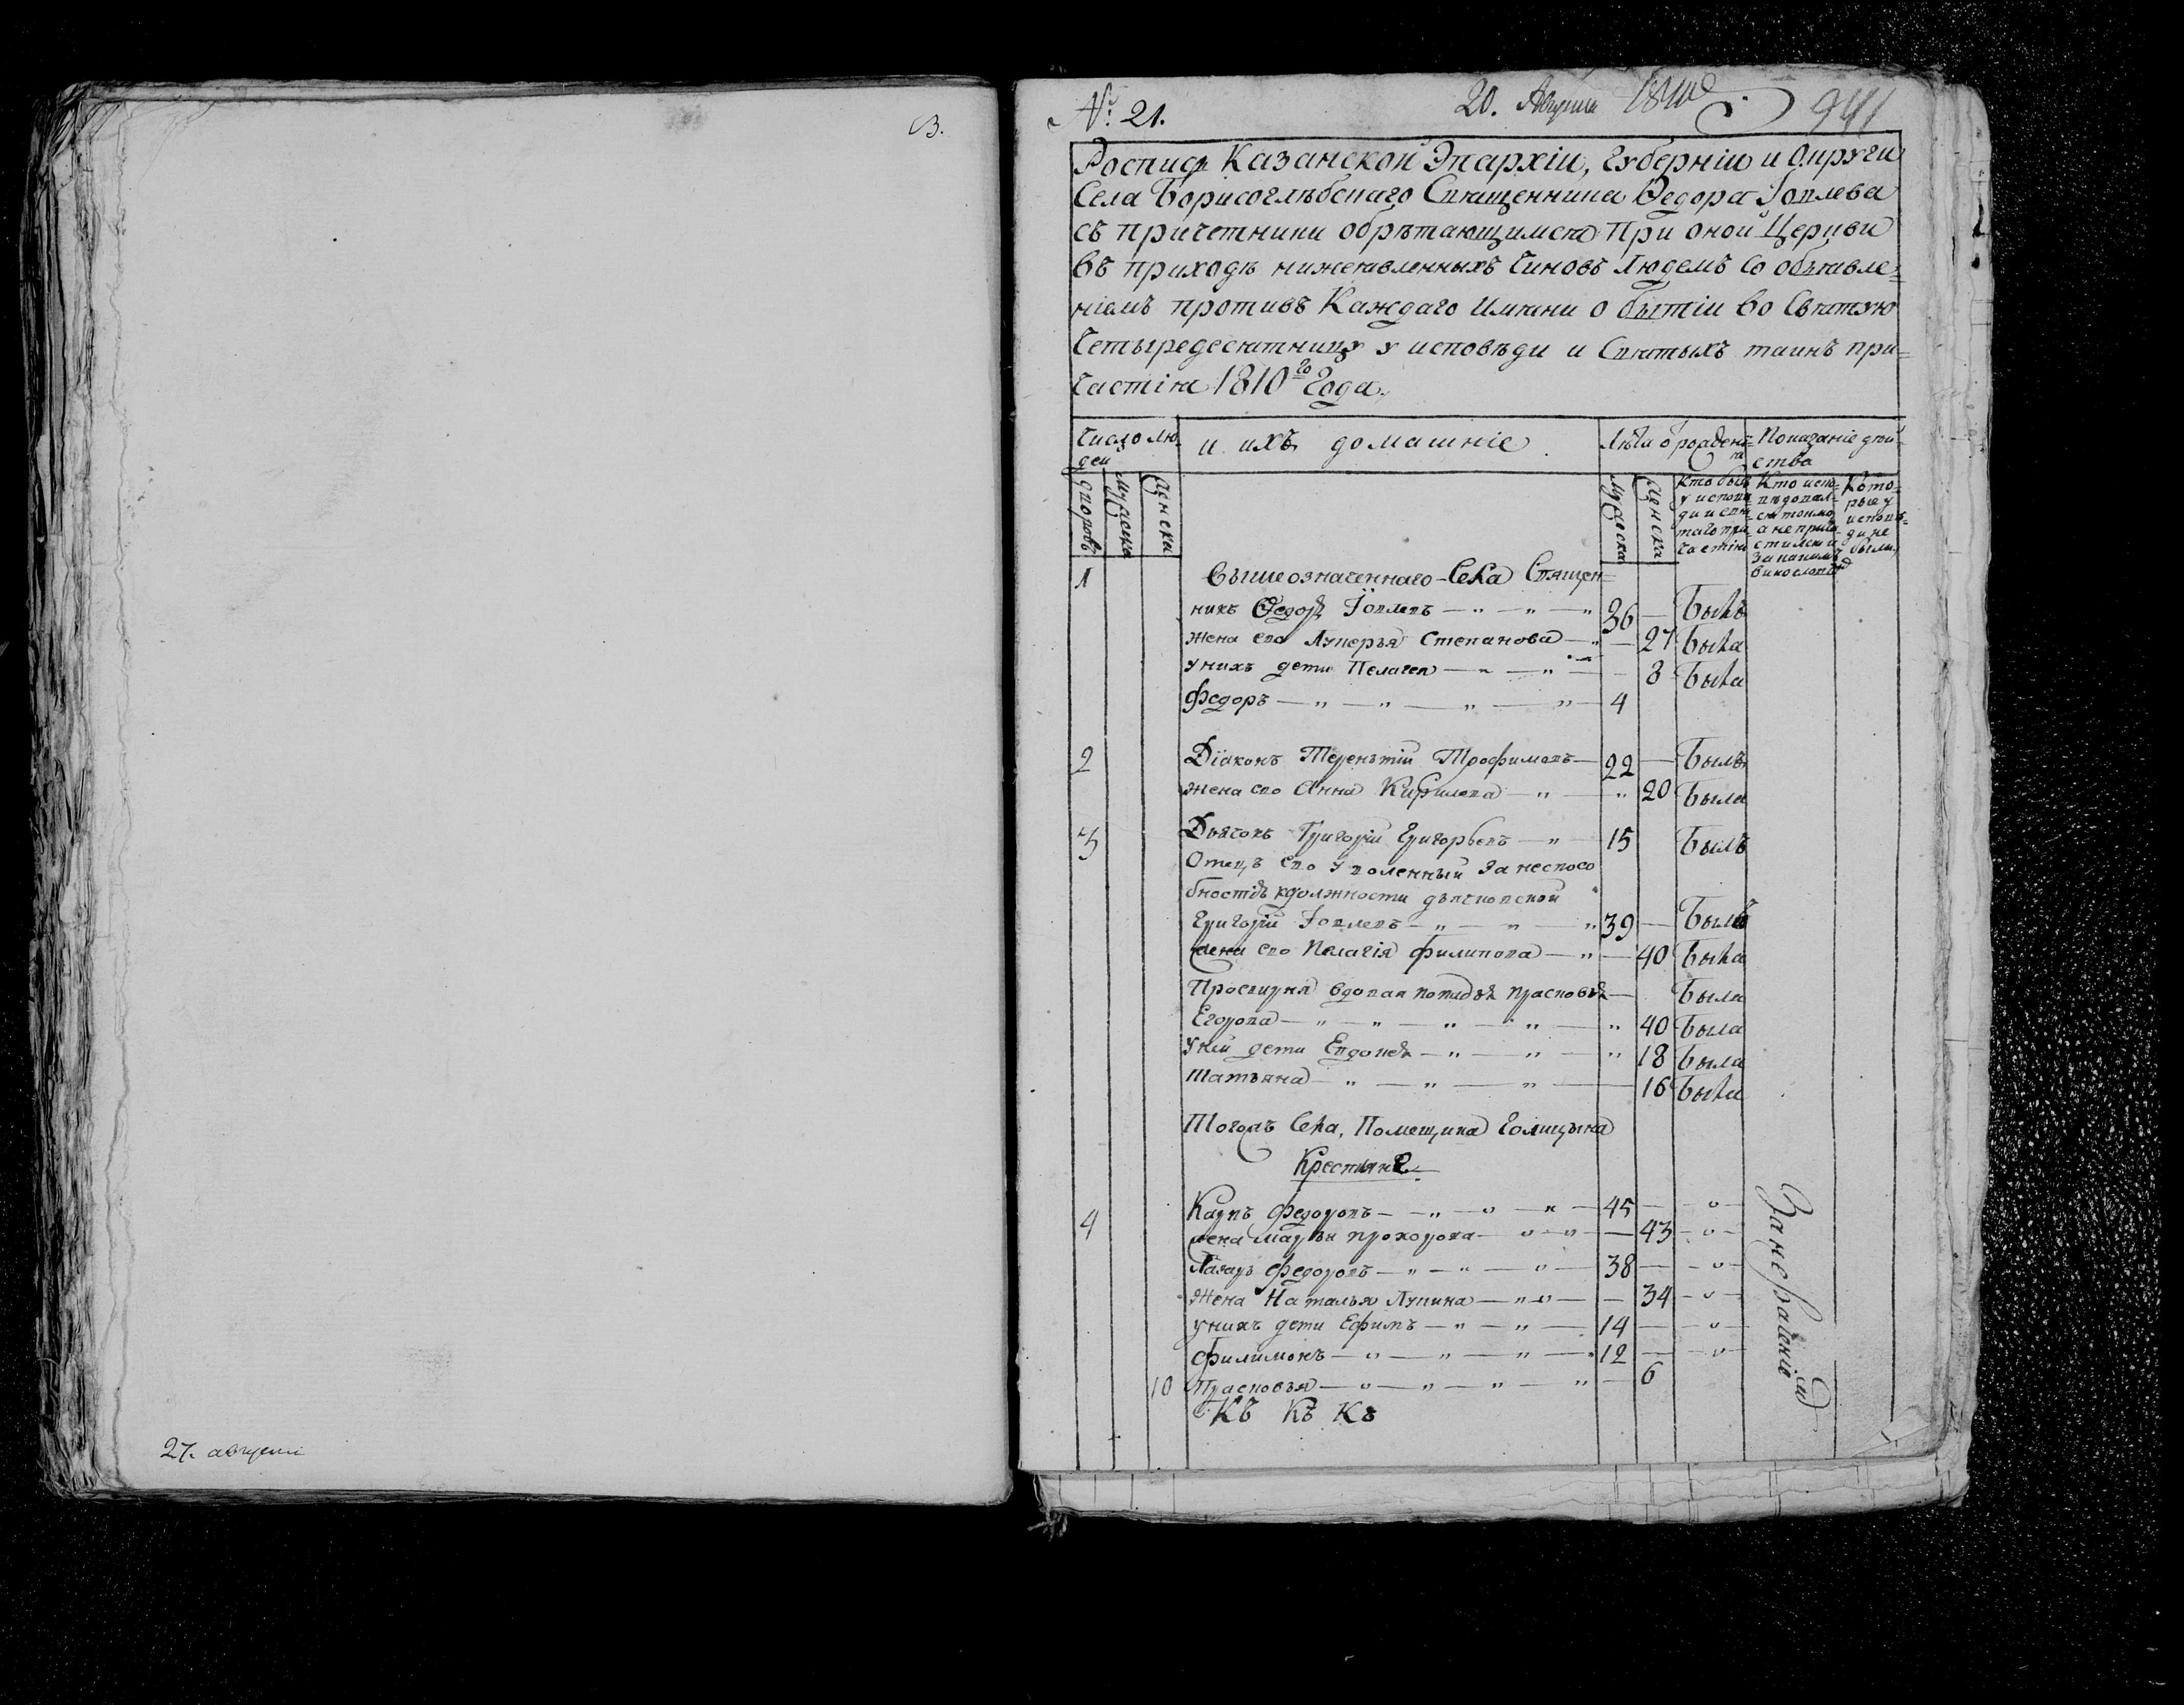 3.
27. августа
№ 21.
20. Августа 1810 941
Роспись Казанской Эпархіи, Губерніи и Округи
Села Борисоглѣбскаго Священника Ѳедора Іовлева
съ причетники обрѣтающимся при оной Церкви
въ приходѣ нижеявленныхъ Чиновъ Людемъ Со объявле=
ніемъ противъ Каждаго Имяни о бытіи во Святую
Четыредесятницу у исповѣди и Святыхъ таинъ при=
частія 1810го Года.
Число лю
дей
и ихъ домашніе
Лѣта ѿ рожден=
ія
Показаніе дѣй=
ства
дворовъ
мужеска
женска
мужеска
женска
Кто былъ
у исповѣ
ди и свя
таго при
частія
Кто испо=
вѣдовал=
ся токмо
а не прича
стился и
за какимъ
винословіемъ
Кото=
рые у
исповѣ=
ди не
были
1 Вышеозначеннаго Села Священ=
никъ Ѳедоръ Іовлевъ 36 — былъ
жена ево Лукерья Степанова — 27 была
у нихъ дети Пелагея — 8 была
Федоръ 4
2 Діаконъ Терентій Трофимовъ 22 — былъ
жена ево Анна Кирилова 20 была
3 Дьячокъ Григорій Григорьевъ 15 былъ
Отецъ ево уволенный за неспосо
бностію к должности дьячковской
Григорій Іовлевъ 39 — былъ
жена ево Пелагія Филипова — 40 была
Просвирня вдовая попадья Прасковья — была
Егорова 40 была
у ней дети Евдокія 18 была
Татьяна 16 была
Тогожъ Села, Помещика Голицына
Крестьяне
4 Карпъ Федоровъ 45 —
жена Марья Прохорова — 43
Лазарь Федоровъ 38 —
Жена Наталья Лукина — 34
у нихъ дети Ефимъ 14 —
Филимонъ 12 —
10 Прасковья — 6
Къ Къ Къ
За нераченіем